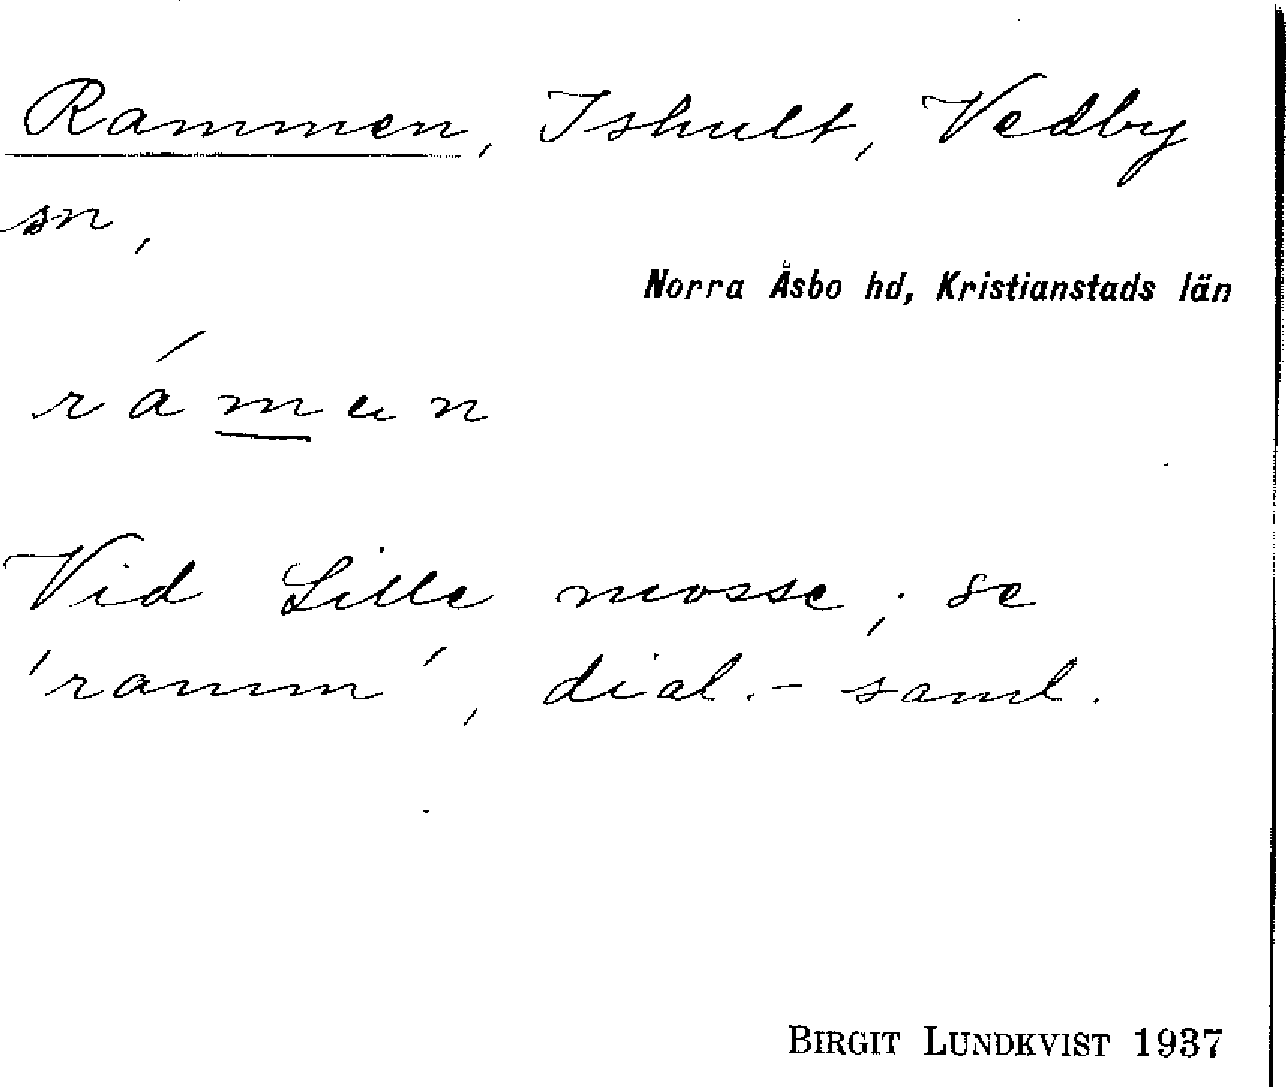 Rammen, Ishult, Vedby
sn,
Norra Åsbo hd, Kristianstads län
rámen
Vid Lille mosse; se
'ramm', dial.-saml.
BIRGIT LUNDKVIST 1937